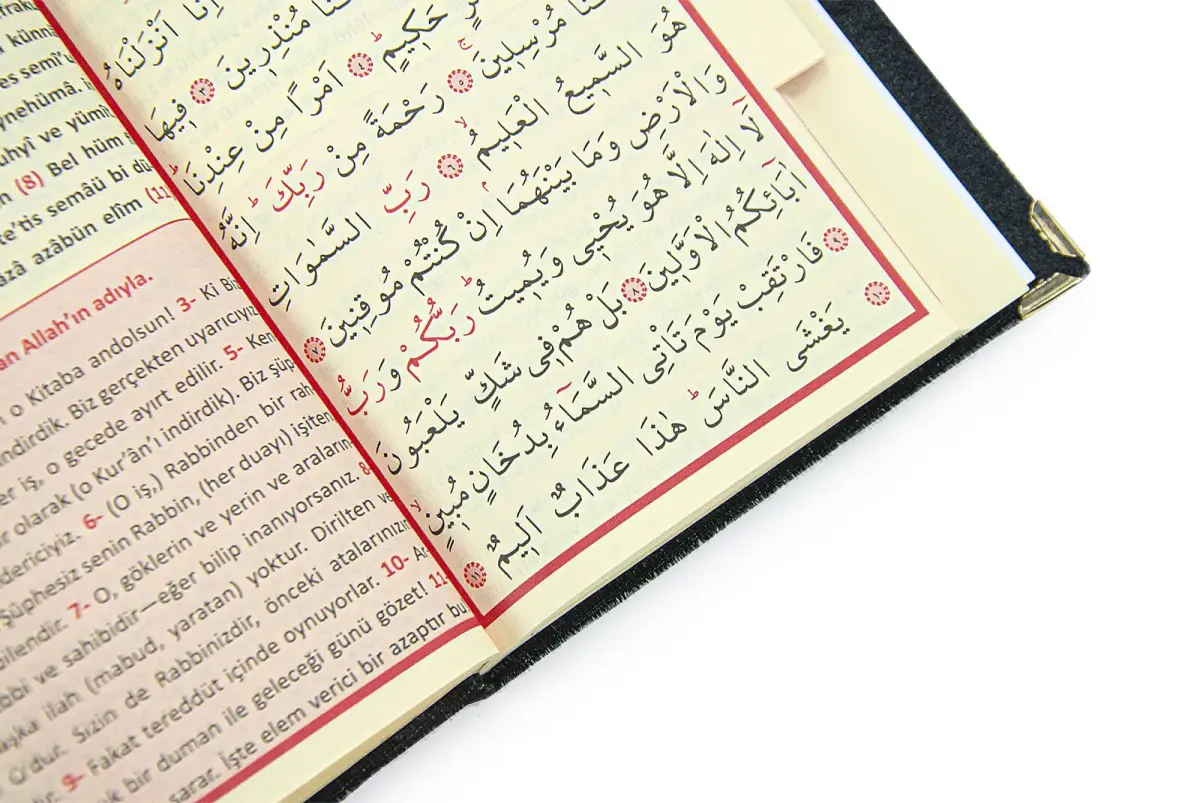 اِنَّٓا اَنْزَلْنَاهُ
مُنْذِرِينَ ﴿٣﴾ فِيهَا
حَكِيمٍ ﴿٤﴾ اَمْرًا مِنْ عِنْدِنَا
مُرْسِلِينَ ﴿٥﴾ رَحْمَةً مِنْ رَبِّكَ اِنَّهُ
هُوَ السَّمِيعُ الْعَلِيمُ ﴿٦﴾ رَبِّ السَّمٰوَاتِ
وَالْاَرْضِ وَمَا بَيْنَهُمَا اِنْ كُنْتُمْ مُوقِنِينَ ﴿٧﴾
لَٓا اِلٰهَ اِلَّا هُوَ يُحْيِى وَيُمِيتُ رَبُّكُمْ وَرَبُّ
اٰبَٓائِكُمُ الْاَوَّلِينَ ﴿٨﴾ بَلْ هُمْ فِى شَكٍّ يَلْعَبُونَ
﴿٩﴾ فَارْتَقِبْ يَوْمَ تَاْتِى السَّمَٓاءُ بِدُخَانٍ مُبِينٍ
﴿١٠﴾ يَغْشَى النَّاسَ هٰذَا عَذَابٌ اَلِيمٌ ﴿١١﴾
ve yümi
(8) Bel hüm
semâü bi dü
azâbün elîm (11)
Allah'ın adıyla.
o Kitaba andolsun! 3- Ki Biz
Biz gerçekten uyarıcıyız
iş, o gecede ayırt edilir. 5-
olarak (o Kur'ân'ı indirdik). Biz
6- (O iş,) Rabbinden bir
Şüphesiz senin Rabbin, (her duayı) işiten
7- O, göklerin ve yerin ve
ve sahibidir—eğer bilip inanıyorsanız. 8-
ilah (mabud, yaratan) yoktur. Dirilten
O'dur. Sizin de Rabbinizdir, önceki atalarınızın
9- Fakat tereddüt içinde oynuyorlar. 10-
bir duman ile geleceği günü gözet! 11-
sarar. İşte elem verici bir azaptır bu